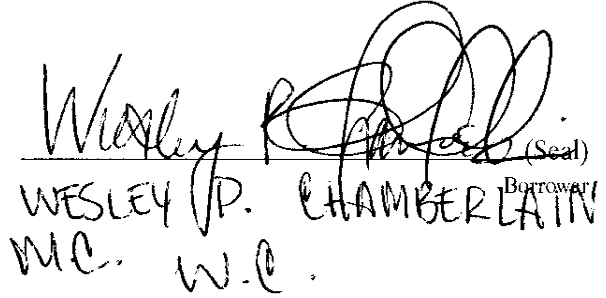 Wesley P. Chamberlain (Seal)
Borrower
WESLEY P. CHAMBERLAIN
M.C. W.C.